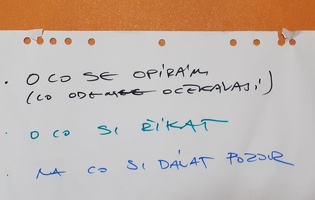 • O CO SE OPÍRÁM
(CO ODEMEE OČEKÁVAJÍ)
• O CO SI ŘÍKAT
• NA CO SI DÁVAT POZOR